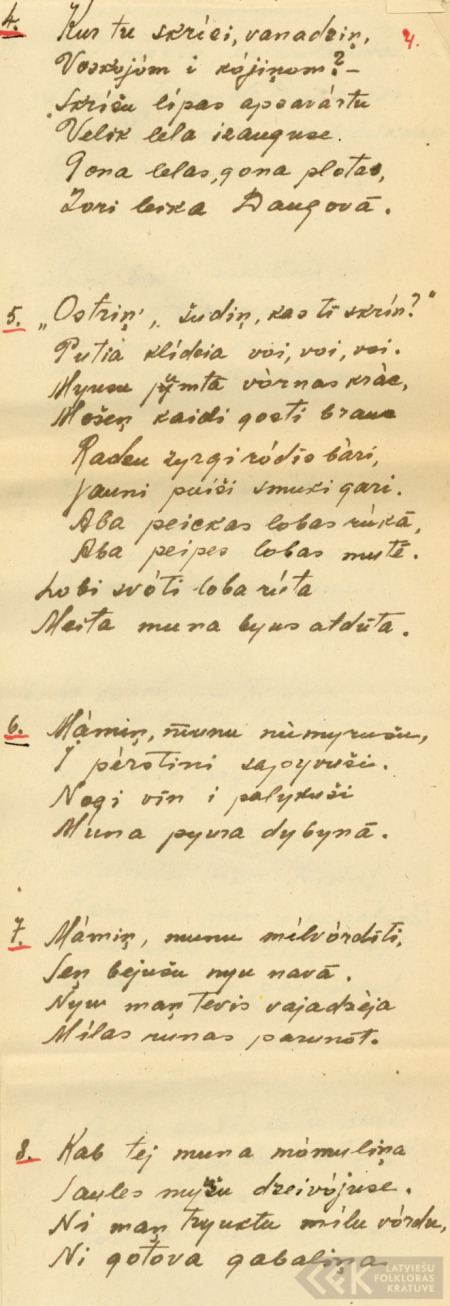 4. Kur tu skrísi, vanadziņ, 4.
Voskojòm i kòjiņom? –
Skríšu lípas apsavárstu
Velik lela izauguse.
Gona lelas, gona plotas,
Zori leika Daugovā.
5. „Ostriņ', žudiņ, kas tī skrín?"
Putiá klídzia voi, voi, voi.
Myusu jymtā vòrnas kràc,
Mošeņ kaidi gosti brauc
Radzu zyrgi ròdis bàri,
Jauni puiši smuki gari.
Aba peickas lobas rúkā,
Aba peipes lobas mutē.
Lobi svóti loba rúta
Meita muna byus atdūta.
6. Màmiņ, munu nùmyrušu,
I pèrstini sapyvuši.
Nogi vīn i palykuši
Muna pyura dybynā.
7. Màmiņ, munu mílvòrdíti,
Seņ bejušu nyu navā.
Nyu maņ tevis vajadzèja
Mílas runas parunot.
8. Kab tej muna mòmuliņa
Saules myžu dzeivòjuse.
Ni maņ tryuktu mílu vòrdu,
Ni gotova gabaliņa
LATVIEŠU
FOLKLORAS
KRATUVE